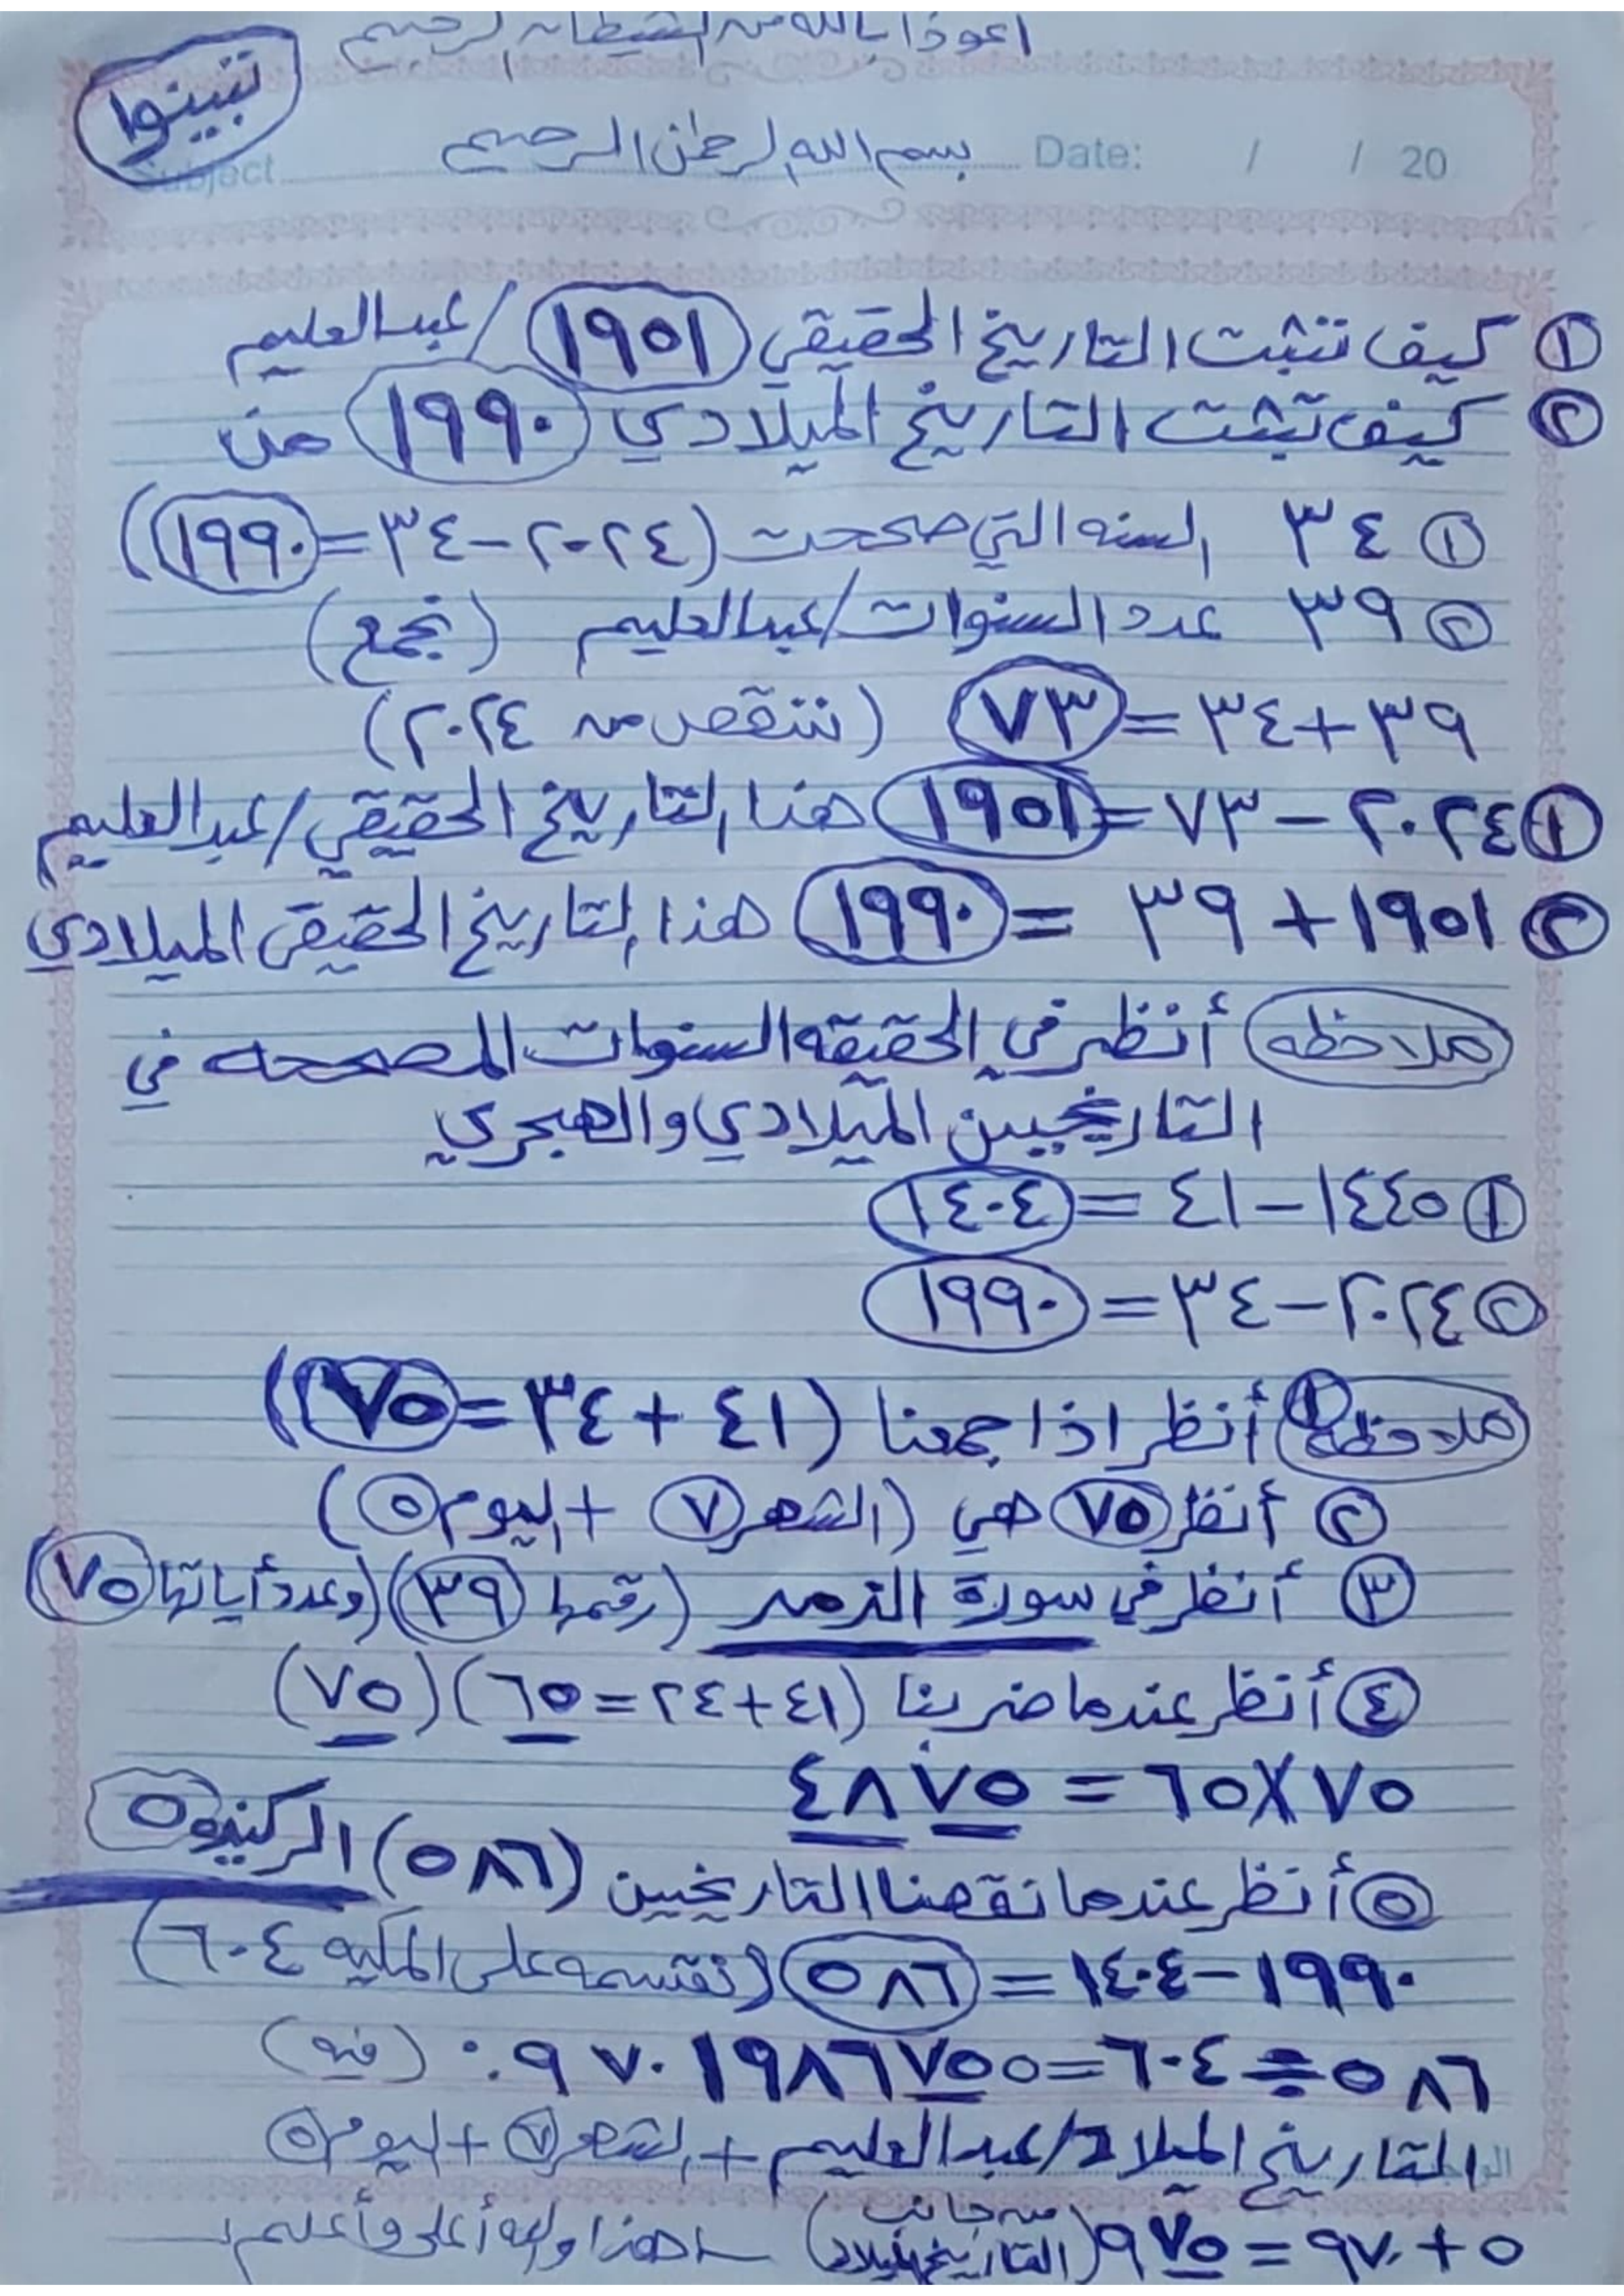 اعوذ بالله من الشيطان الرجيم
تبينوا
بسم الله الرحمن الرحيم Date: / / 20
Subject
① كيف تثبت التاريخ الحقيقي ١٩٥١ / عبدالعليم
② كيف تثبت التاريخ الميلادي ١٩٩٠ من
① ٣٤ السنه التي صححت (٢٠٢٤-٣٤=١٩٩٠)
② ٣٩ عدد السنوات/عبدالعليم (نجمع)
٣٩+٣٤=٧٣ (ننقص من ٢٠٢٤)
① ٢٠٢٤-٧٣=١٩٥١ هذا التاريخ الحقيقي/عبدالعليم
② ١٩٥١+٣٩=١٩٩٠ هذا التاريخ الحقيقي الميلادي
ملاحظه أنظر في الحقيقه السنوات المصححه في
التاريخيين الميلادي والهجري
① ١٤٤٥-٤١=١٤٠٤
② ٢٠٢٤-٣٤=١٩٩٠
ملاحظه ① أنظر اذا جمعنا (٤١+٣٤=٧٥)
② أنظر ٧٥ هي (الشهر ٧ + اليوم ٥)
③ أنظر في سورة الزمر (رقمها ٣٩) (وعدد أياتها ٧٥
④ أنظر عندما ضربنا (٤١+٢٤=٦٥) (٧٥)
٧٥×٦٥=٤٨٧٥
⑤ أنظر عندما نقصنا التاريخيين (٥٨٦)
١٩٩٠-١٤٠٤=٥٨٦ (نقسمه على المكيه ٦٠٤)
٥٨٦÷٦٠٤=٠.٩٧٠١٩٨٦٧٥٥ (فيه)
التاريخ الميلاد/عبدالعليم + الشهر ٧ + اليوم ٥
٥+٩٧٠=٩٧٥ (من جانب التاريخ الميلاد) هذا والله أعلى وأعلم